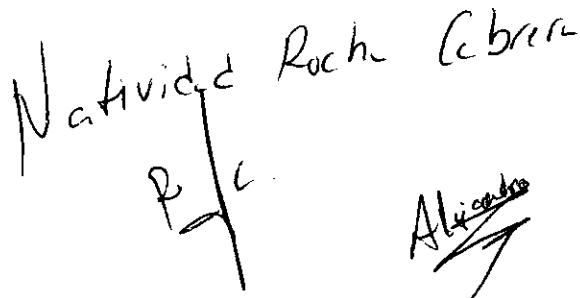 Natividad Rocha Cabrera
R C.
Alejandro